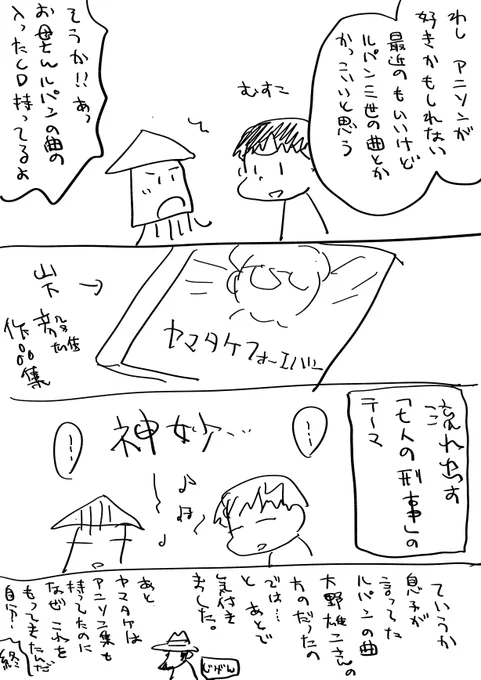 わし アニソンが
好きかもしれない
最近のもいいけど
ルパン三世の曲とか
かっこいいと思う
むすこ
てうか!!あっ
お母さんルパンの曲の
入ったCD持ってるよ
ヤマタケフォーエバー
山下
毅雄
作品集
流れ出す
「七人の刑事」の
テーマ
神妙…
ていうか
息子が
言ってた
ルパンの曲
大野雄二さんの
方のだったの
では…
と あとで
気付き
ました。
あと
ヤマタケは
アニソン集も
持ってたのに
なぜこれを
もってきたんだ
自分!
終
じげん